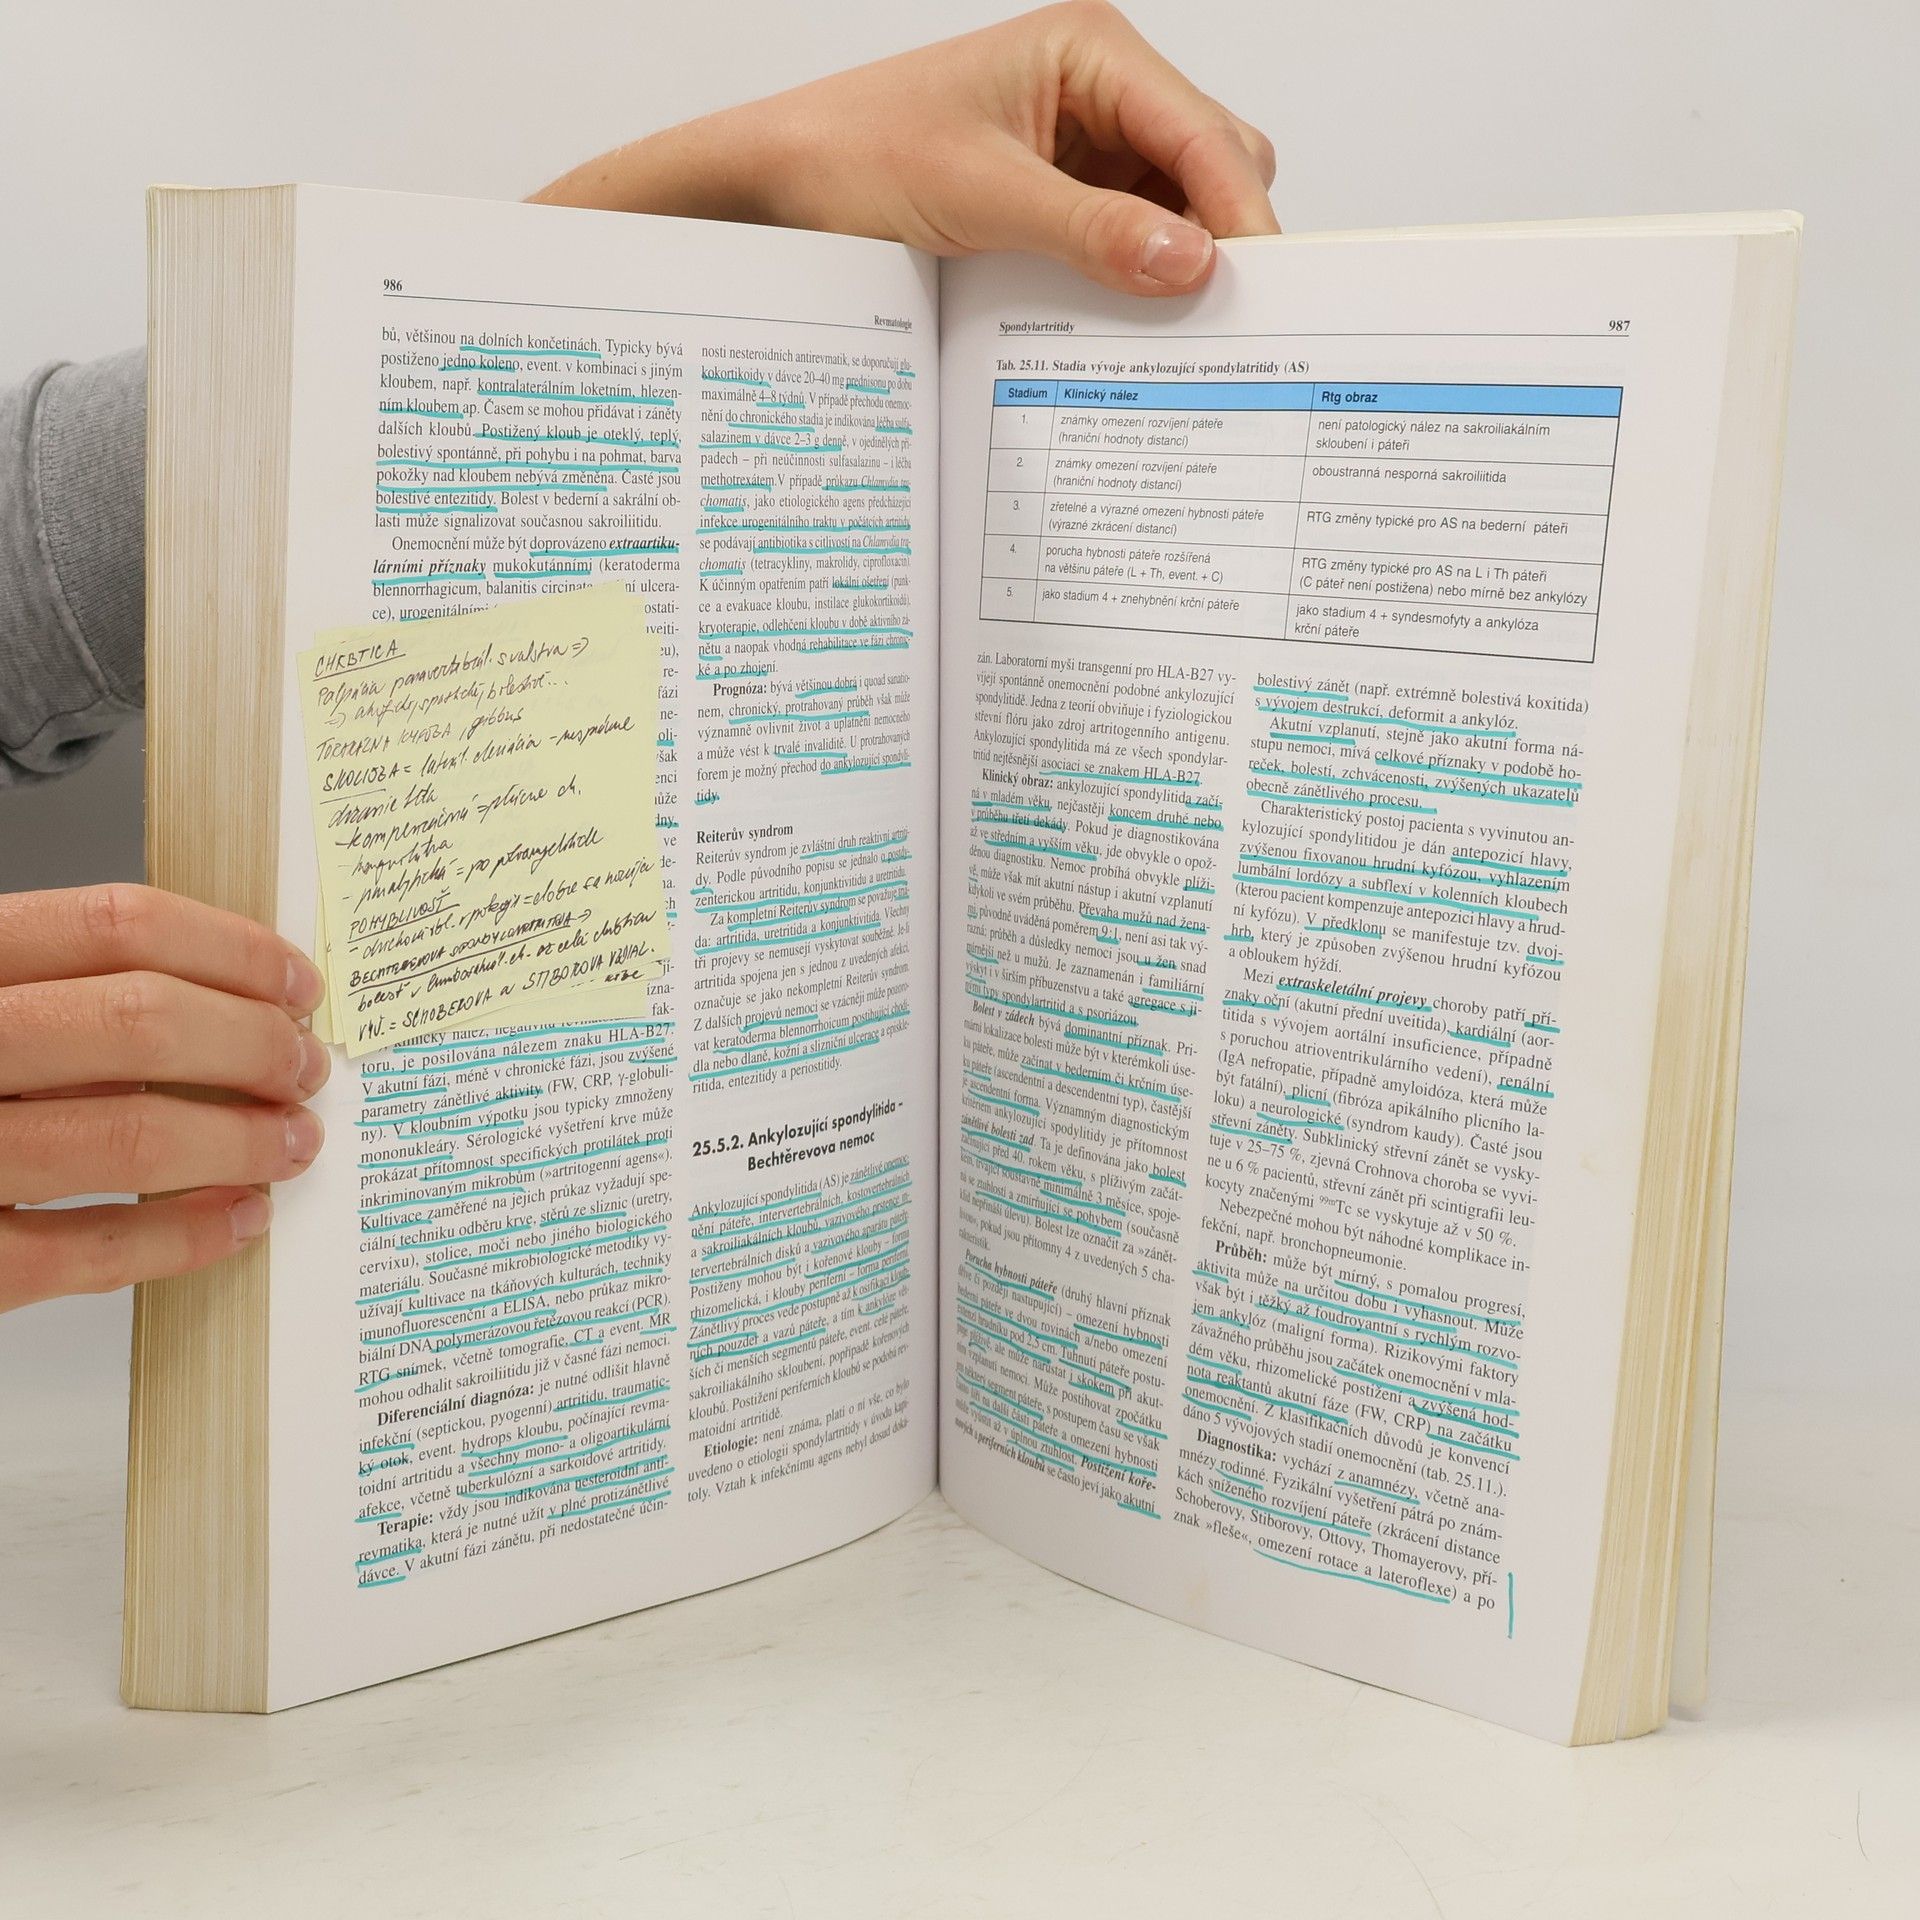 986
Revmatologie
bů, většinou na dolních končetinách. Typicky bývá
postiženo jedno koleno, event. v kombinaci s jiným
kloubem, např. kontralaterálním loketním, hlezen-
ním kloubem ap. Časem se mohou přidávat i záněty
dalších kloubů. Postižený kloub je oteklý, teplý,
bolestivý spontánně, při pohybu i na pohmat, barva
pokožky nad kloubem nebývá změněna. Časté jsou
bolestivé entezitidy. Bolest v bederní a sakrální ob-
lasti může signalizovat současnou sakroiliitidu.
Onemocnění může být doprovázeno extraartiku-
lárními příznaky mukokutánními (keratoderma
blennorrhagicum, balanitis circinata ulcera-
ce), urogenitálními
CHRBTICA
Palpácia
TORAKÁLNA KYFÓZA, gibbus
SKOLIÓZA =
držanie tela
POHYBLIVOSŤ
toru, je posilována nálezem znaku HLA-B27.
V akutní fázi, méně v chronické fázi, jsou zvýšené
parametry zánětlivé aktivity (FW, CRP, γ-globuli-
ny). V kloubním výpotku jsou typicky zmnoženy
mononukleáry. Sérologické vyšetření krve může
prokázat přítomnost specifických protilátek proti
inkriminovaným mikrobům (»artritogenní agens«).
Kultivace zaměřené na jejich průkaz vyžadují spe-
ciální techniku odběru krve, stěrů ze sliznic (uretry,
cervixu), stolice, moči nebo jiného biologického
materiálu. Současné mikrobiologické metodiky vy-
užívají kultivace na tkáňových kulturách, techniky
imunofluorescenční a ELISA, nebo průkaz mikro-
biální DNA polymerázovou řetězovou reakcí (PCR).
RTG snímek, včetně tomografie, CT a event. MR
mohou odhalit sakroiliitidu již v časné fázi nemoci.
Diferenciální diagnóza: je nutné odlišit hlavně
infekční (septickou, pyogenní) artritidu, traumatic-
ký otok, event. hydrops kloubu, počínající revma-
toidní artritidu a všechny mono- a oligoartikulární
afekce, včetně tuberkulózní a sarkoidové artritidy.
Terapie: vždy jsou indikována nesteroidní anti-
revmatika, která je nutné užít v plné protizánětlivé
dávce. V akutní fázi zánětu, při nedostatečné účin-
nosti nesteroidních antirevmatik, se doporučují glu-
kokortikoidy v dávce 20–40 mg prednisonu po dobu
maximálně 4–8 týdnů. V případě přechodu onemoc-
nění do chronického stadia je indikována léčba sulfa-
salazinem v dávce 2–3 g denně, v ojedinělých pří-
padech – při neúčinnosti sulfasalazinu – i léčba
methotrexátem. V případě průkazu Chlamydia tra-
chomatis, jako etiologického agens předcházející
infekce urogenitálního traktu v počátcích artritidy,
se podávají antibiotika s citlivostí na Chlamydia tra-
chomatis (tetracykliny, makrolidy, ciprofloxacin).
K účinným opatřením patří lokální ošetření (punk-
ce a evakuace kloubu, instilace glukokortikoidů),
kryoterapie, odlehčení kloubu v době aktivního zá-
nětu a naopak vhodná rehabilitace ve fázi chronic-
ké a po zhojení.
Prognóza: bývá většinou dobrá i quoad sanatio-
nem, chronický, protrahovaný průběh však může
významně ovlivnit život a uplatnění nemocného
a může vést k trvalé invaliditě. U protrahovaných
forem je možný přechod do ankylozující spondyli-
tidy.
Reiterův syndrom
Reiterův syndrom je zvláštní druh reaktivní artriti-
dy. Podle původního popisu se jednalo o postdy-
zenterickou artritidu, konjunktivitidu a uretritidu.
Za kompletní Reiterův syndrom se považuje triá-
da: artritida, uretritida a konjunktivitida. Všechny
tři projevy se nemusejí vyskytovat souběžně. Je-li
artritida spojena jen s jednou z uvedených afekcí,
označuje se jako nekompletní Reiterův syndrom.
Z dalších projevů nemoci se vzácněji může pozoro-
vat keratoderma blennorrhoicum postihující chodi-
dla nebo dlaně, kožní a slizniční ulcerace a episkle-
ritida, entezitidy a periostitidy.
25.5.2. Ankylozující spondylitida –
Bechtěrevova nemoc
Ankylozující spondylitida (AS) je zánětlivé onemoc-
nění páteře, intervertebrálních, kostovertebrálních
a sakroiliakálních kloubů, vazivového prstence in-
tervertebrálních disků a vazivového aparátu páteře.
Postiženy mohou být i kořenové klouby – forma
rhizomelická, i klouby periferní – forma periferní.
Zánětlivý proces vede postupně až k osifikaci kloub-
ních pouzder a vazů páteře, a tím k ankylóze vět-
ších či menších segmentů páteře, event. celé páteře,
sakroiliakálního skloubení, popřípadě kořenových
kloubů. Postižení periferních kloubů se podobá rev-
matoidní artritidě.
Etiologie: není známa, platí o ní vše, co bylo
uvedeno o etiologii spondylartritidy v úvodu kapi-
toly. Vztah k infekčnímu agens nebyl dosud doká-
Spondylartritidy
987
Tab. 25.11. Stadia vývoje ankylozující spondylatritidy (AS)
Stadium Klinický nález Rtg obraz
1. známky omezení rozvíjení páteře (hraniční hodnoty distancí) není patologický nález na sakroiliakálním skloubení i páteři
2. známky omezení rozvíjení páteře (hraniční hodnoty distancí) oboustranná nesporná sakroiliitida
3. zřetelné a výrazné omezení hybnosti páteře (výrazné zkrácení distancí) RTG změny typické pro AS na bederní páteři
4. porucha hybnosti páteře rozšířená na většinu páteře (L + Th, event. + C) RTG změny typické pro AS na L i Th páteři (C páteř není postižena) nebo mírně bez ankylózy
5. jako stadium 4 + znehybnění krční páteře jako stadium 4 + syndesmofyty a ankylóza krční páteře
zán. Laboratorní myši transgenní pro HLA-B27 vy-
víjejí spontánně onemocnění podobné ankylozující
spondylitidě. Jedna z teorií obviňuje i fyziologickou
střevní flóru jako zdroj artritogenního antigenu.
Ankylozující spondylitida má ze všech spondylar-
tritid nejtěsnější asociaci se znakem HLA-B27.
Klinický obraz: ankylozující spondylitida začí-
ná v mladém věku, nejčastěji koncem druhé nebo
v průběhu třetí dekády. Pokud je diagnostikována
až ve středním a vyšším věku, jde obvykle o opož-
děnou diagnostiku. Nemoc probíhá obvykle plíži-
vě, může však mít akutní nástup i akutní vzplanutí
kdykoli ve svém průběhu. Převaha mužů nad žena-
mi, původně uváděná poměrem 9:1, není asi tak vý-
razná; průběh a důsledky nemoci jsou u žen snad
mírnější než u mužů. Je zaznamenán i familiární
výskyt i v širším příbuzenstvu a také agregace s ji-
nými typy spondylartritid a s psoriázou.
Bolest v zádech bývá dominantní příznak. Pri-
mární lokalizace bolesti může být v kterémkoli úse-
ku páteře, může začínat v bederním či krčním úse-
ku páteře (ascendentní a descendentní typ), častější
je ascendentní forma. Významným diagnostickým
kritériem ankylozující spodylitidy je přítomnost
zánětlivé bolesti zad. Ta je definována jako bolest
začínající před 40. rokem věku, s plíživým začát-
kem, trvající soustavně minimálně 3 měsíce, spoje-
ná se ztuhlostí a zmírňující se pohybem (současně
klid nepřináší úlevu). Bolest lze označit za »zánět-
livou«, pokud jsou přítomny 4 z uvedených 5 cha-
rakteristik.
Porucha hybnosti páteře (druhý hlavní příznak
dříve či později nastupující) – omezení hybnosti
bederní páteře ve dvou rovinách a/nebo omezení
extenzí hrudníku pod 2,5 cm. Tuhnutí páteře postu-
puje plíživě, ale může narůstat i skokem při akut-
ním vzplanutí nemoci. Může postihovat zpočátku
jen některý segment páteře, s postupem času se však
často šíří na další části páteře a omezení hybnosti
může vyústit až v úplnou ztuhlost. Postižení koře-
nových a periferních kloubů se často jeví jako akutní
bolestivý zánět (např. extrémně bolestivá koxitida)
s vývojem destrukcí, deformit a ankylóz.
Akutní vzplanutí, stejně jako akutní forma ná-
stupu nemoci, mívá celkové příznaky v podobě ho-
reček, bolestí, zchvácenosti, zvýšených ukazatelů
obecně zánětlivého procesu.
Charakteristický postoj pacienta s vyvinutou an-
kylozující spondylitidou je dán antepozicí hlavy,
zvýšenou fixovanou hrudní kyfózou, vyhlazením
lumbální lordózy a subflexí v kolenních kloubech
(kterou pacient kompenzuje antepozici hlavy a hrud-
ní kyfózu). V předklonu se manifestuje tzv. dvoj-
hrb, který je způsoben zvýšenou hrudní kyfózou
a obloukem hýždí.
Mezi extraskeletální projevy choroby patří pří-
znaky oční (akutní přední uveitida), kardiální (aor-
titida s vývojem aortální insuficience, případně
s poruchou atrioventrikulárního vedení), renální
(IgA nefropatie, případně amyloidóza, která může
být fatální), plicní (fibróza apikálního plicního la-
loku) a neurologické (syndrom kaudy). Časté jsou
střevní záněty. Subklinický střevní zánět se vysky-
tuje v 25–75 %, zjevná Crohnova choroba se vyvi-
ne u 6 % pacientů, střevní zánět při scintigrafii leu-
kocyty značenými ⁹⁹ᵐTc se vyskytuje až v 50 %.
Nebezpečné mohou být náhodné komplikace in-
fekční, např. bronchopneumonie.
Průběh: může být mírný, s pomalou progresí,
aktivita může na určitou dobu i vyhasnout. Může
však být i těžký až foudroyantní s rychlým rozvo-
jem ankylóz (maligní forma). Rizikovými faktory
závažného průběhu jsou začátek onemocnění v mla-
dém věku, rhizomelické postižení a zvýšená hod-
nota reaktantů akutní fáze (FW, CRP) na začátku
onemocnění. Z klasifikačních důvodů je konvencí
dáno 5 vývojových stadií onemocnění (tab. 25.11.).
Diagnostika: vychází z anamnézy, včetně ana-
mnézy rodinné. Fyzikální vyšetření pátrá po znám-
kách sníženého rozvíjení páteře (zkrácení distance
Schoberovy, Stiborovy, Ottovy, Thomayerovy, pří-
znak »fleše«, omezení rotace a lateroflexe) a po